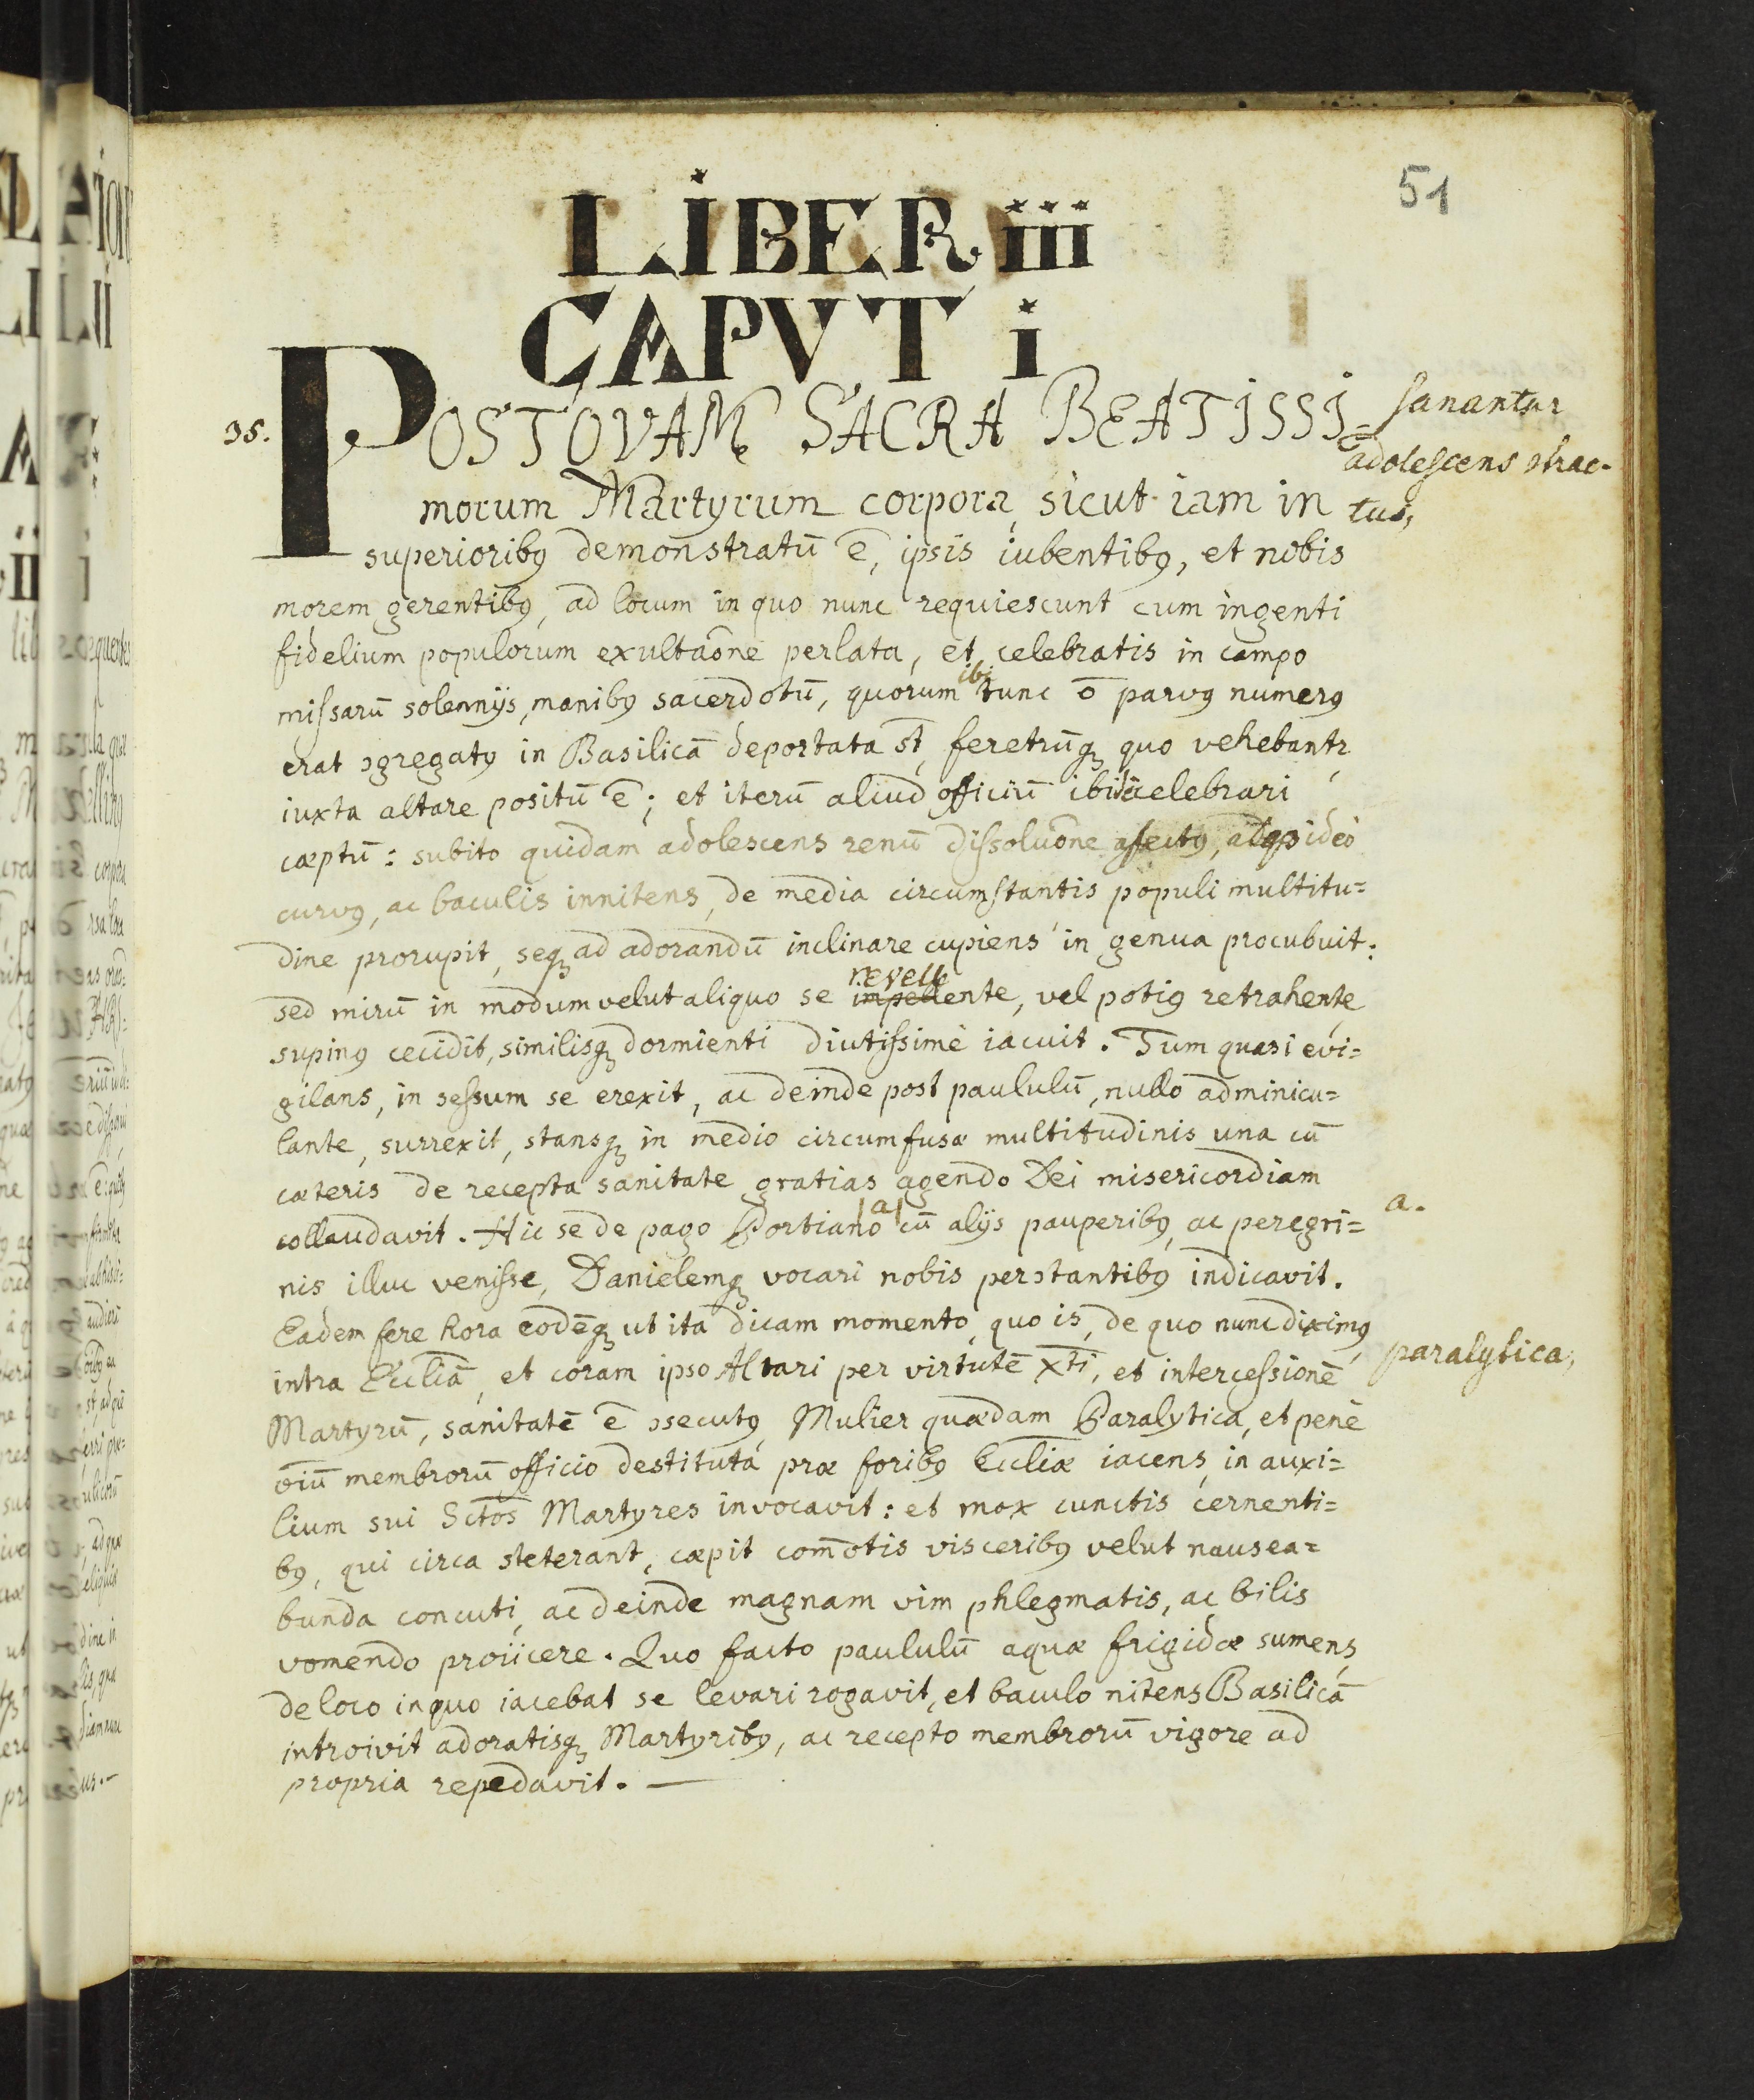 51
LiBER iii
CAPVT i
35. POSTQVAM SACRA BEATISSI=
morum Martyrum corpora, sicut iam in
superioribꝯ demonstratū ē, ipsis iubentibꝯ, et nobis
morem gerentibꝯ, ad locum in quo nunc requiescunt cum ingenti
fidelium populorum exultaōne perlata, et celebratis in campo
missarū solennijs, manibꝯ sacerdotū, quorum ibi tunc ō parvꝯ numerꝯ
erat ɔgregatꝯ in Basilicā deportata st̄, feretrūqꝫ quo vehebantr,
iuxta altare positū ē; et iterū aliud officiū ibidē celebrari
cœptū: subito quidam adolescens renū dissoluōne affectꝯ, atqꝫ ideo
curvꝯ, ac baculis innitens, de media circumstantis populi multitu=
dine prorupit, seqꝫ ad adorandū inclinare cupiens in genua procubuit:
sed mirū in modum velut aliquo se impellente revelle, vel potiꝯ retrahente
supinꝯ cecidit, similisqꝫ dormienti diutissimè iacuit. Tum quasi evi=
gilans, in sessum se erexit, ac deinde post paululū, nullo adminicu=
lante, surrexit, stansqꝫ in medio circumfusæ multitudinis una cū
cæteris de recepta sanitate gratias agendo Dei misericordiam
collaudavit. Hic se de pago Portiano |a| cū alijs pauperibꝯ, ac peregri=
nis illuc venisse, Danielemqꝫ vocari nobis perɔtantibꝯ indicavit.
Eadem fere hora eodēqꝫ ut ita dicam momento, quo is, de quo nunc diximꝯ,
intra Eccliā, et coram ipso Altari per virtutē Xti, et intercessionē
Martyrū, sanitatē ē ɔsecutꝯ, Mulier quædam Paralytica, et penè
oīū membrorū officio destituta præ foribꝯ Eccliæ iacens, in auxi=
lium sui Sctōs Martyres invocavit: et mox cunctis cernenti=
bꝯ, qui circa steterant, cœpit com̄otis visceribꝯ velut nausea=
bunda concuti, ac deinde magnam vim phlegmatis, ac bilis
vomendo proiicere. Quo facto paululū aquæ frigidæ sumens,
de loco in quo iacebat se levari rogavit, et baculo nitens Basilicā
introivit adoratisqꝫ Martyribꝯ, ac recepto membrorū vigore ad
propria repedavit. —
sanantur
adolescens ɔtrac-
tus,
a.
paralytica,